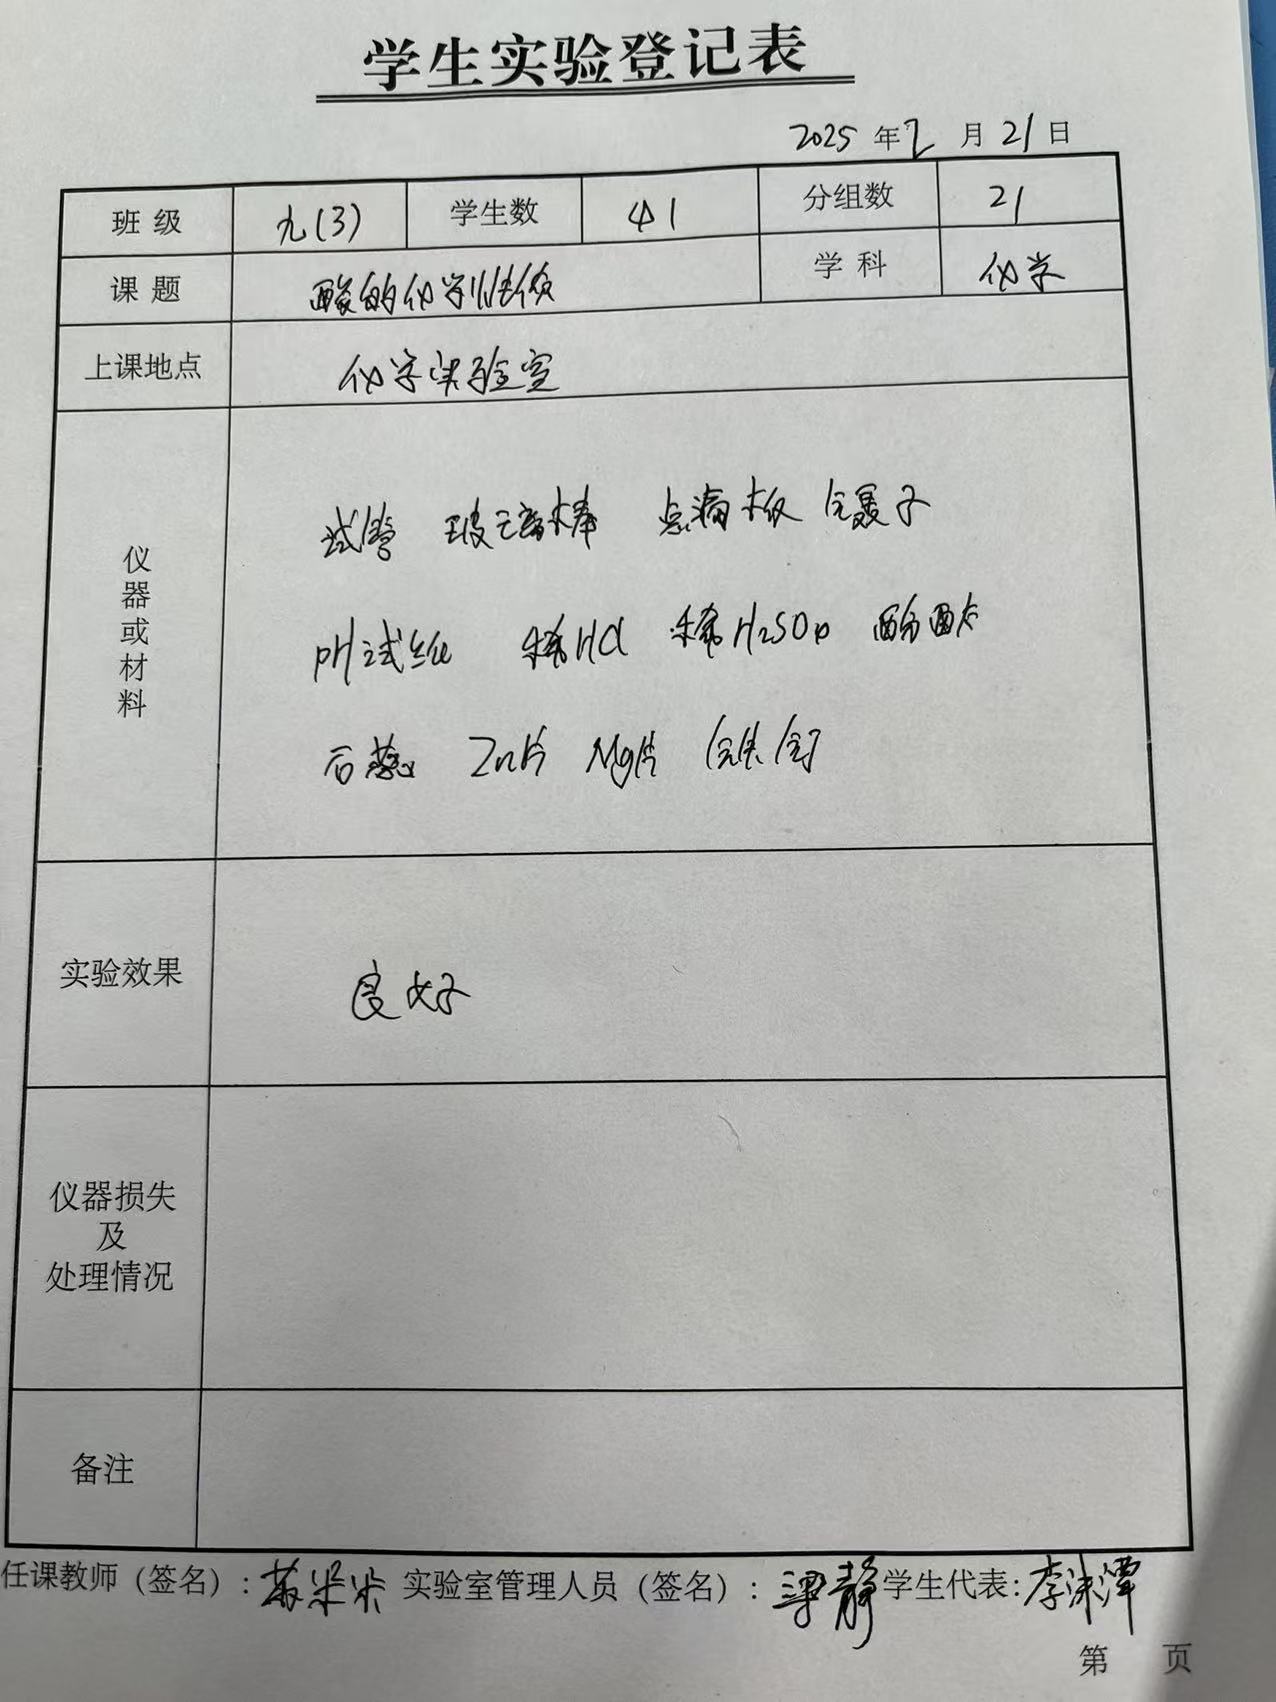 学生实验登记表
2025 年 2 月 21 日
班 级 九(3) 学生数 41 分组数 21
课 题 酸的化学性质 学 科 化学
上课地点 化学实验室
仪器或材料
试管 玻璃棒 点滴板 镊子
pH试纸 稀HCl 稀H2SO4 酚酞
石蕊 Zn片 Mg片 铁钉
实验效果 良好
仪器损失
及
处理情况
备注
任课教师（签名）: 实验室管理人员（签名）: 梁静 学生代表: 李沐潭
第 页